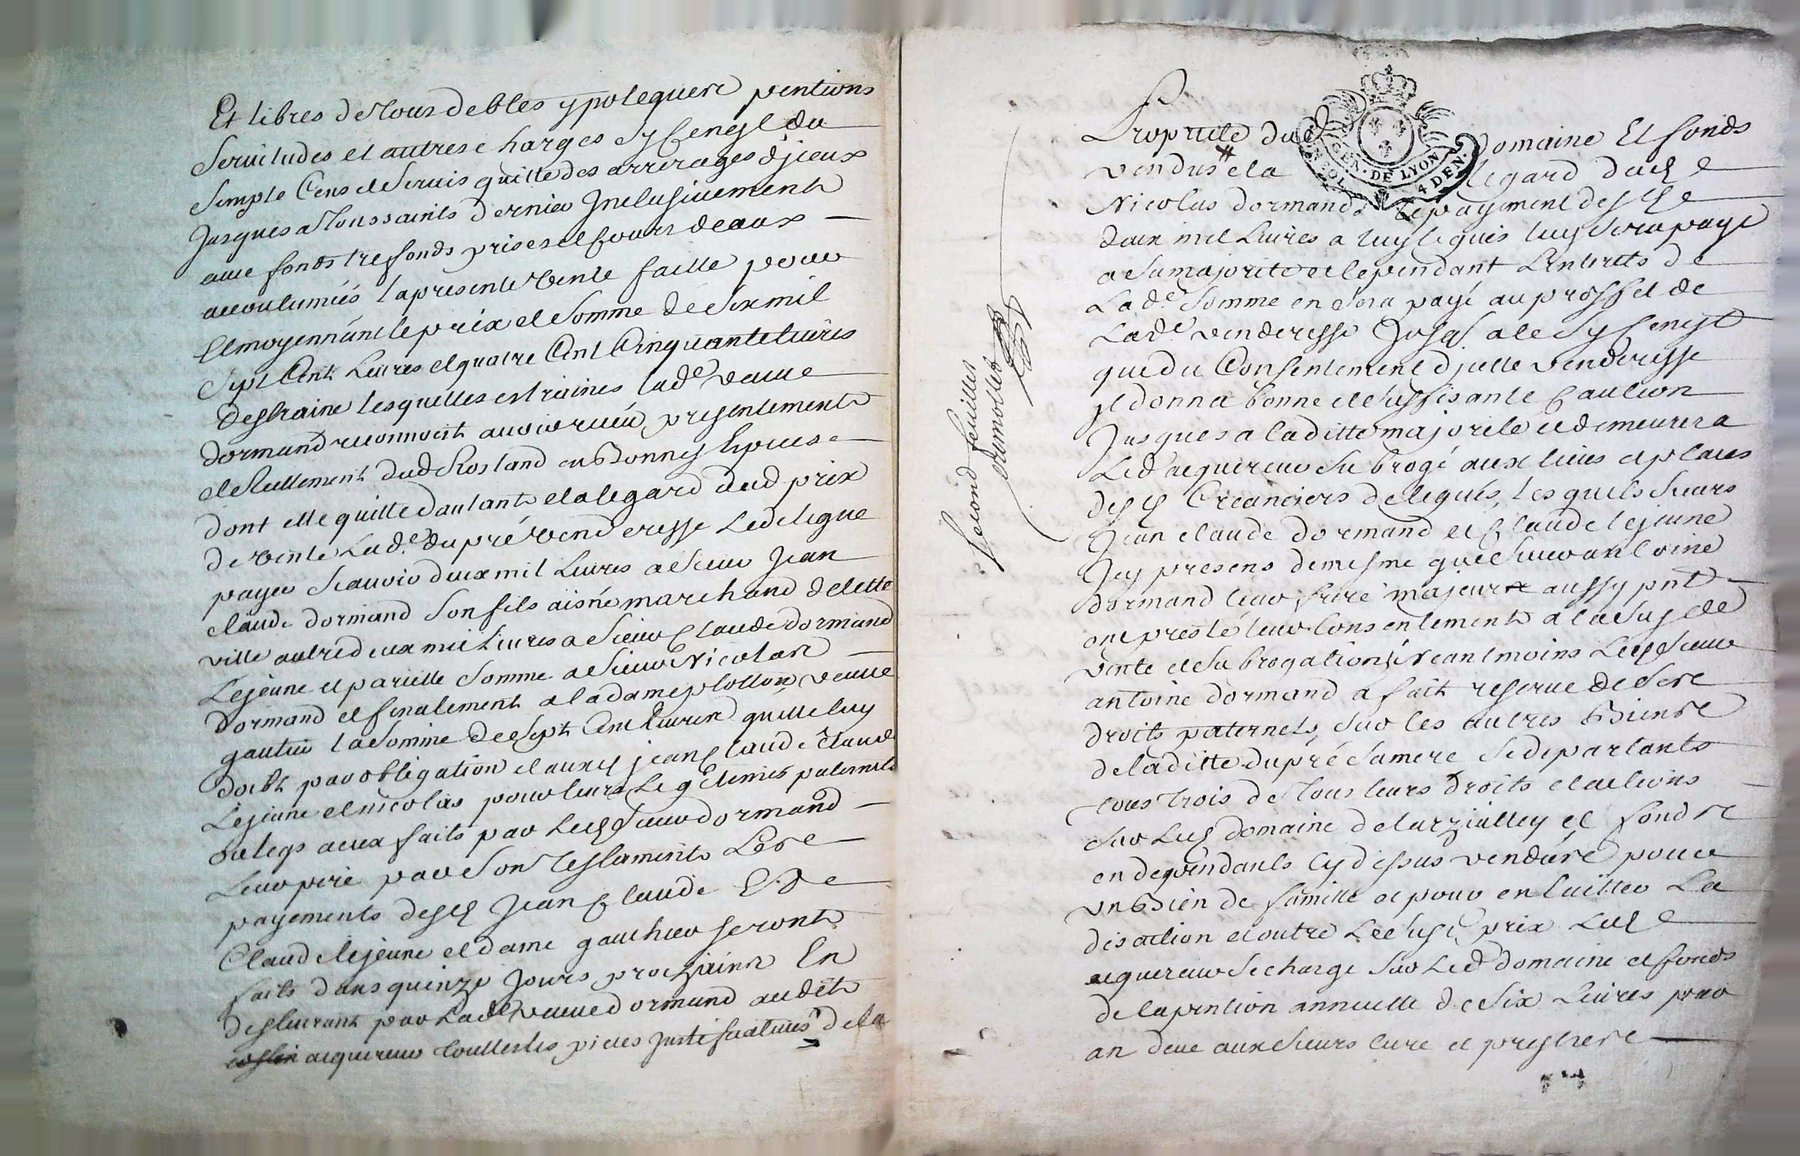 Et libres de tous debtes ypotequere pentions
Servitudes et autres charges
Simple Cens et Servis quitte des arrerages d'jceux
Jusques a toussaints dernier Jnclusivement
avec fonds trefonds prises et cours deaux
accoutumiés la presente vente faitte pour
et moyennant le prix et somme de Six mil
Sept Cent Livres et quatre Cent Cinquante livres
destraine lesquelles estraines lade veuve
dormand reconnoit avoir receu presentement
et reellement dud Rostand en bonnes Epices
dont elle quitte dautant et a legard dud prix
de vente Lade dupré venderesse Le delegue
payer Scavoir deux mil Livres a Sieur Jean
claude dormand Son fils aisné marchand de cette
ville autre deux mil Livres a Sieur Claude dormand
Lejeune et pareille Somme a Sieur Nicolas
Dormand et finalement a la dame veuve
gautier la Somme de Sept Cent Livres quelle luy
doibt par obligation et auxd jean Claude Claude
Lejeune et nicolas pour leurs Legitimes paternels
ou legs a eux faits par Led Sieur dormand
Leur pere par Son testament Les
payements desd Jean Claude Et
Claude lejeune et dame gauthier Seront
faits dans quinze Jours prochains En
deslivrant par Lade veuve dormand audit
acquereur touttes les pieces Justificatives de la
Second feuillet
Proprieté dud Domaine Et fonds
vendus et a Legard dud
Nicolas dormand Le payement desd
deux mil Livres a luy legués luy Sera payé
a Sa majorité et cependant Lintrets de
Lade Somme en Sera payé au proffit de
Lade venderesse Jusqs a ce
que du Consentement d'jcelle venderesse
jl donna bonne et Suffisante Caution
Jusques a laditte majorité et demeurera
Led acquereur Subrogé aux lieus et places
desd Creanciers delegués, Lesquels Sieurs
Jean claude dormand et Claude lejeune
Jcy presens de mesme que Sieur antoine
dormand leur frere majeur aussy pnt
ont presté leur Consentement a la Susde
vente et Subrogation Neantmoins Led Sieur
antoine dormand a fait reserve de Ses
droits paternels Sur les autres biens
de laditte dupré Sa mere Se departants
tous trois de tous leurs droits et actions
Sur Led domaine et fonds
en dependants Cy dessus vendus pour
un bien de famille et pour en Eviter La
discution et outre Le Susd prix Led
acquereur Se charge Sur Led domaine et fonds
de la pention annuelle de Six Livres par
an deue aux Sieurs Cure et prestres
GEN. DE LYON
4 DEN.